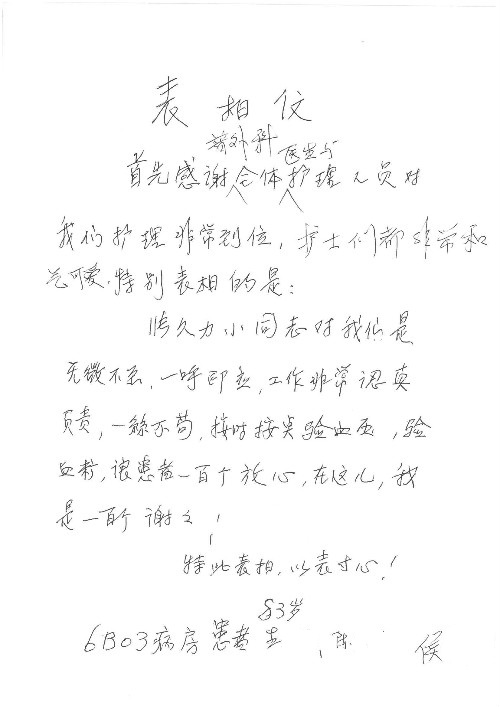 表相仪
首先感谢核外科全体医生与护理人员对
我们护理非常到位，护士们都非常和
气可爱，特别表相的是：
小同志对我们是
无微不至，一呼即应，工作非常认真
负责，一丝不苟，按时按点验血压，验
血粘，让患者一百个放心，在这儿，我
是一百个谢々！
特此表相，以表寸心！
83岁
6B03病房患者 陈 侯